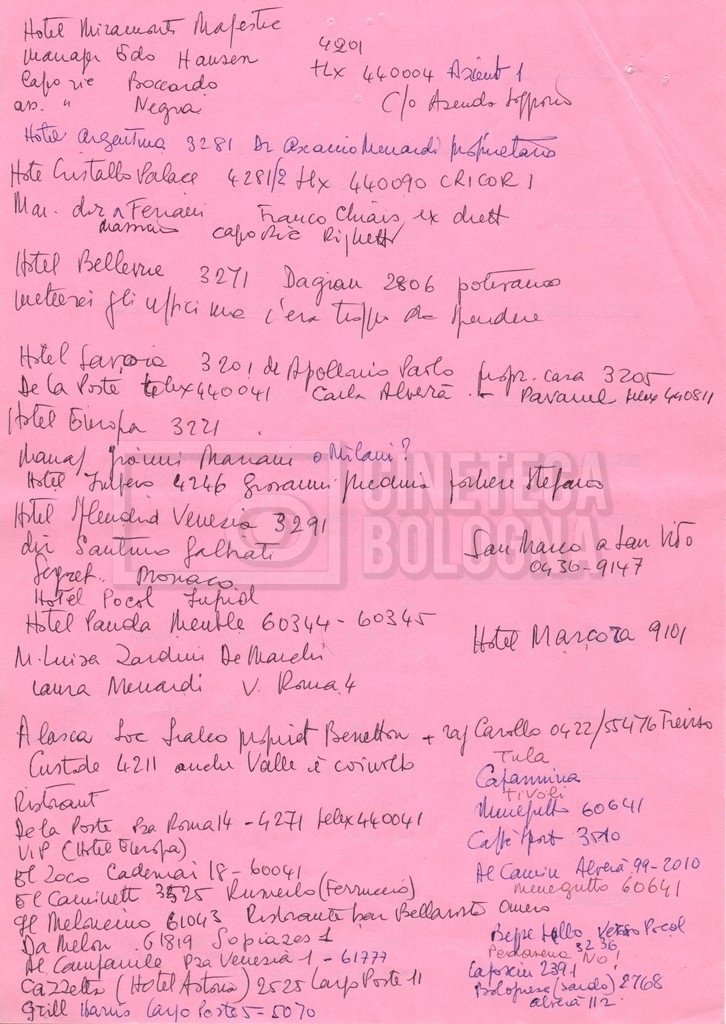 Hotel Miramonti Majestic
manager Edo Hansen 4201
Capo ric Boccardo tlx 440004
as. " Negrai c/o
Hotel Argentina 3281 Dr Ascanio Menardi proprietario
Hote Cristallo Palace 4281/2 tlx 440090 CRICOR I
Mar. dir Ferrari Franco Chiari ex dirett
massimo capo ric Righetti
Hotel Bellevue 3271 Dagian 2806 potevamo
metterci gli uffici ma c'era troppo da spendere
Hotel Savoia 3201 de Apollonio Paolo propr. casa 3205
De la Poste telex 440041 Carla Alverà - telex 440811
Hotel Europa 3221
manag Gianni Mariani o Milani?
Hotel Impero 4246 Giovanni portiere Stefano
Hotel Splendid Venezia 3291
dir Santino Galbiati
Segret. Monaco
San Marco a San Vito
0436-9147
Hotel Pocol
Hotel Panda Meublè 60344-60345
Hotel Marcora 9101
M. Luisa Zardini De Marchi
Laura Menardi V. Roma 4
Alasca Soc propriet Benetton + rag Carollo 0422/55476 Treviso
Custode 4211 anche Valle è coinvolto
Ristoranti
De la Poste Pza Roma 14 - 4271 telex 440041
VIP (Hotel Europa)
El Zoco Cademai 18 - 60041
El Caminett 3525 Rumerlo (Ferruccio)
Il Meloncino 61043 Ristorante bar Bellavista
Da Melon 61819 Sopiazes 1
Al Campanile Pza Venezia 1 - 61777
Cazzetta (Hotel Astoria) 2525 Largo Poste 11
Grill Harris Largo Poste 5 - 5070
Tula
Capannina
Tivoli
Menegutto 60641
Caffè Sport 3510
Al Camin Alverà 99-2010
menegutto 60641
Beppe Lello verso Pocol
3236
No!
2391
Bolognese (Sardo) 2768
alverà 112
CINETECA
BOLOGNA